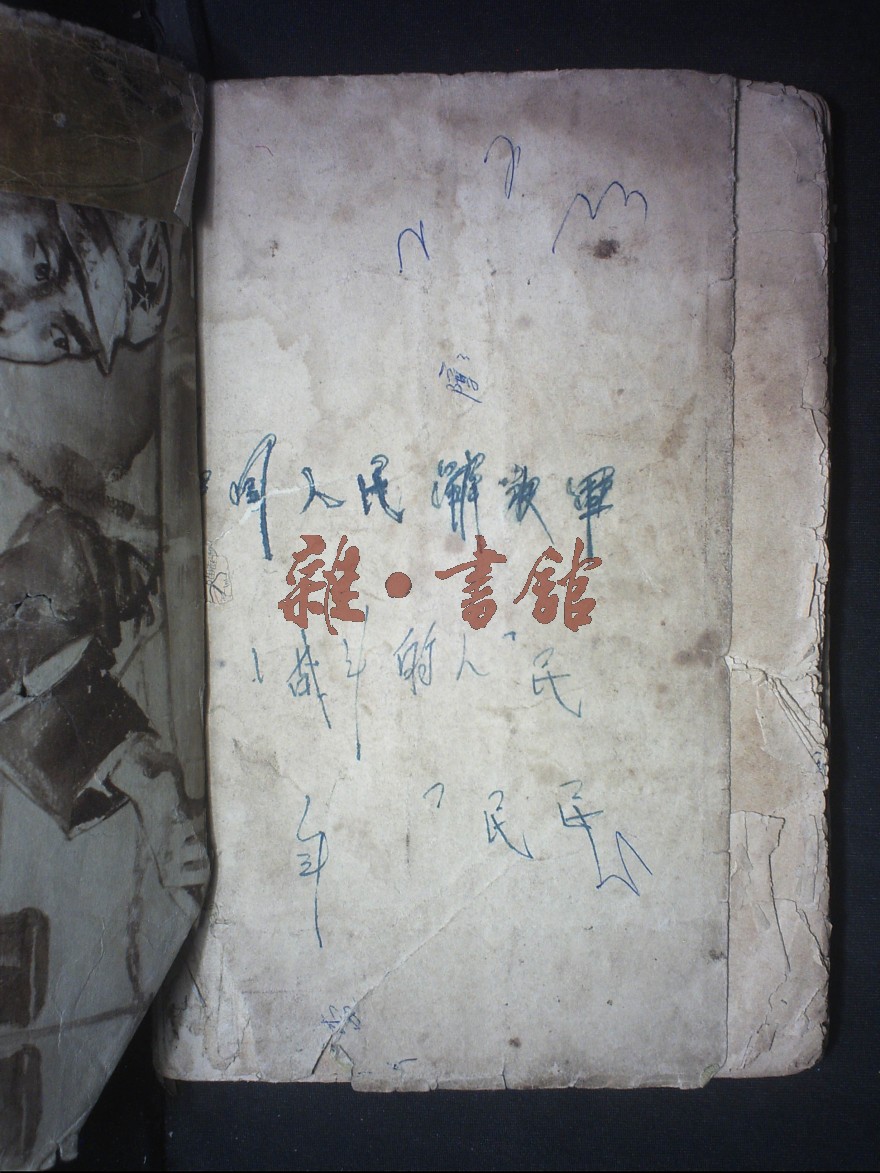 国人民解放军
雜·書館
战斗的人民
民民
年